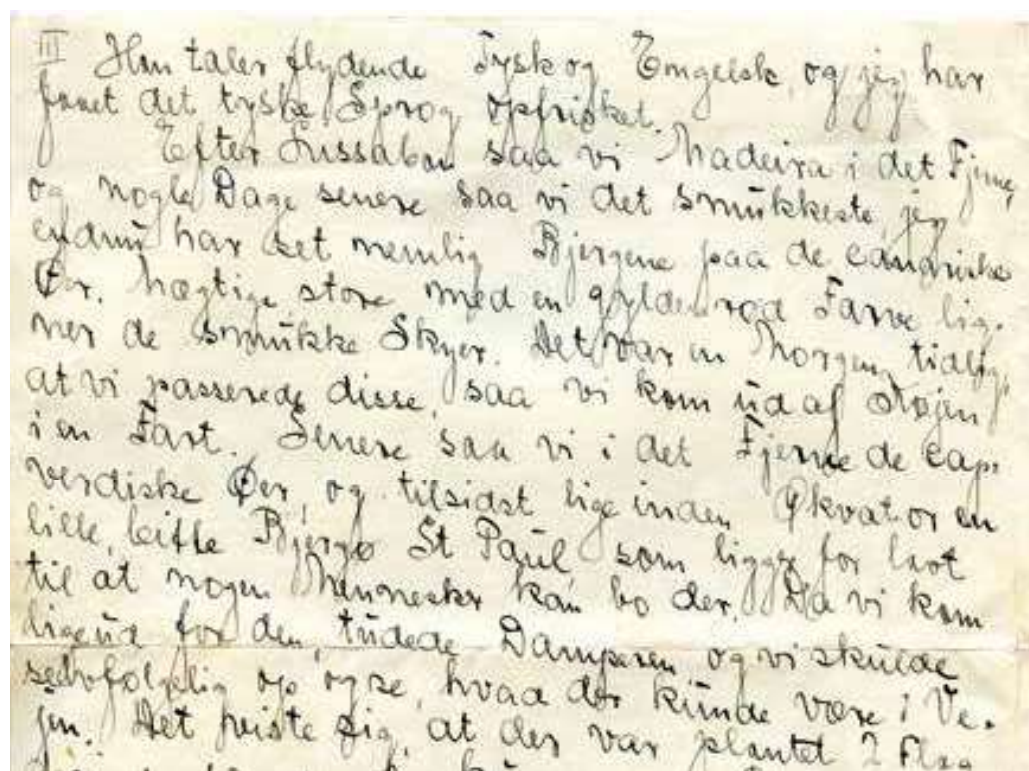 III Hun taler flydende Tysk og Engelsk, og jeg har
faaet det tyske Sprog opfrisket.
Efter Lissabon saa vi Madeira i det Fjerne,
og nogle Dage senere saa vi det smukkeste, jeg
endnu har set nemlig Bjergene paa de canariske
Øer. Mægtige, store med en gylden rød Farve lig-
ner de smukke Skyer. Det var en Morgen, tidlig,
at vi passerede disse, saa vi kom ud af Køjen
i en Fart. Senere saa vi i det Fjerne de cap-
verdiske Øer, og tilsidst lige inden Økvator en
lille, bitte Bjergø St Paul som ligger for lavt
til at nogen Mennesker kan bo der. Da vi kom
ligeud for den, tudede Damperen, og vi skulde
selvfølgelig op og se, hvad der kunde være i Ve-
jen. Det viste sig, at der var plantet 2 Flag